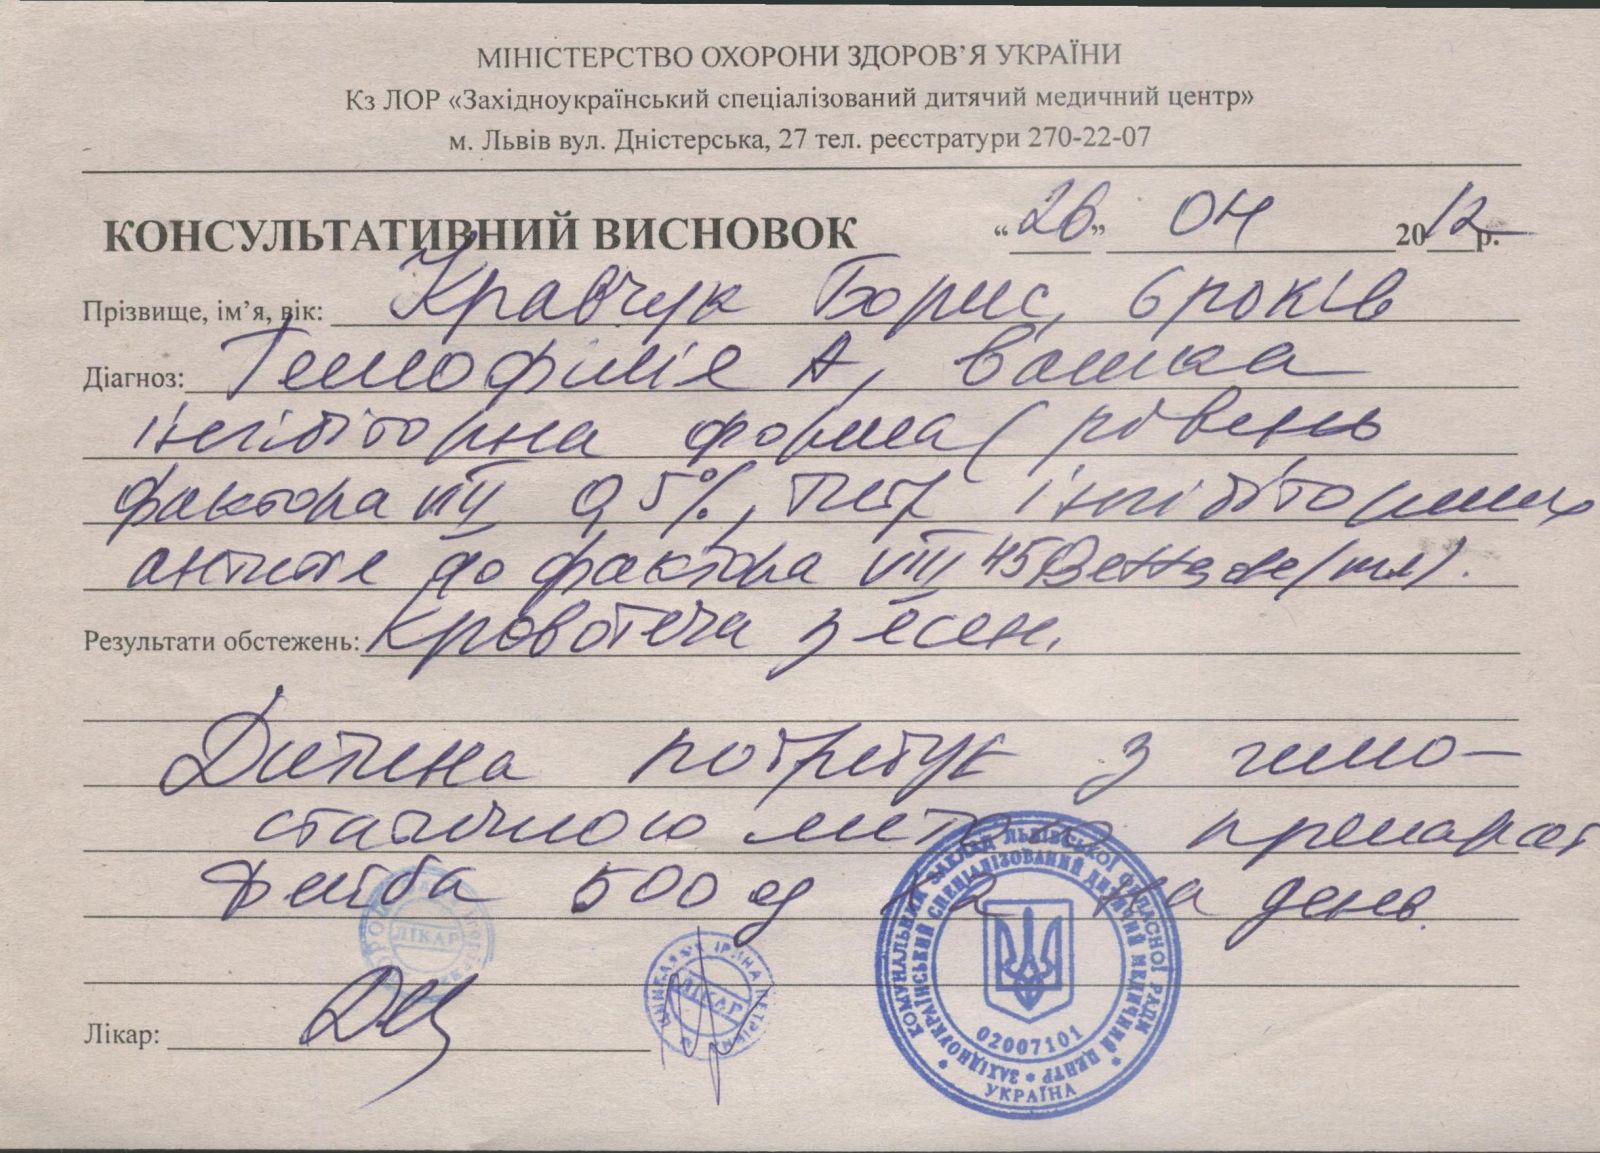 МІНІСТЕРСТВО ОХОРОНИ ЗДОРОВ’Я УКРАЇНИ
Кз ЛОР «Західноукраїнський спеціалізований дитячий медичний центр»
м. Львів вул. Дністерська, 27 тел. реєстратури 270-22-07
КОНСУЛЬТАТИВНИЙ ВИСНОВОК “26” 04 2012 р.
Прізвище, ім’я, вік: Кравчук Борис, 6 років
Діагноз: Гемофілія А, важка
інгібіторна форма (рівень
фактора VIII 0,5%, титр інгібіторних
антитіл до фактора VIII 45 /мл).
Результати обстежень: Кровотеча з ясен.
Дитина потребує з гемо-
статичною метою препарат
Фейба 500 од на день.
Лікар:
ЛІКАР
ІРИНА ПЕТРІВНА
ЛІКАР
КОМУНАЛЬНИЙ ЗАКЛАД ЛЬВІВСЬКОЇ ОБЛАСНОЇ РАДИ
ЗАХІДНОУКРАЇНСЬКИЙ СПЕЦІАЛІЗОВАНИЙ ДИТЯЧИЙ МЕДИЧНИЙ ЦЕНТР
02007101
УКРАЇНА